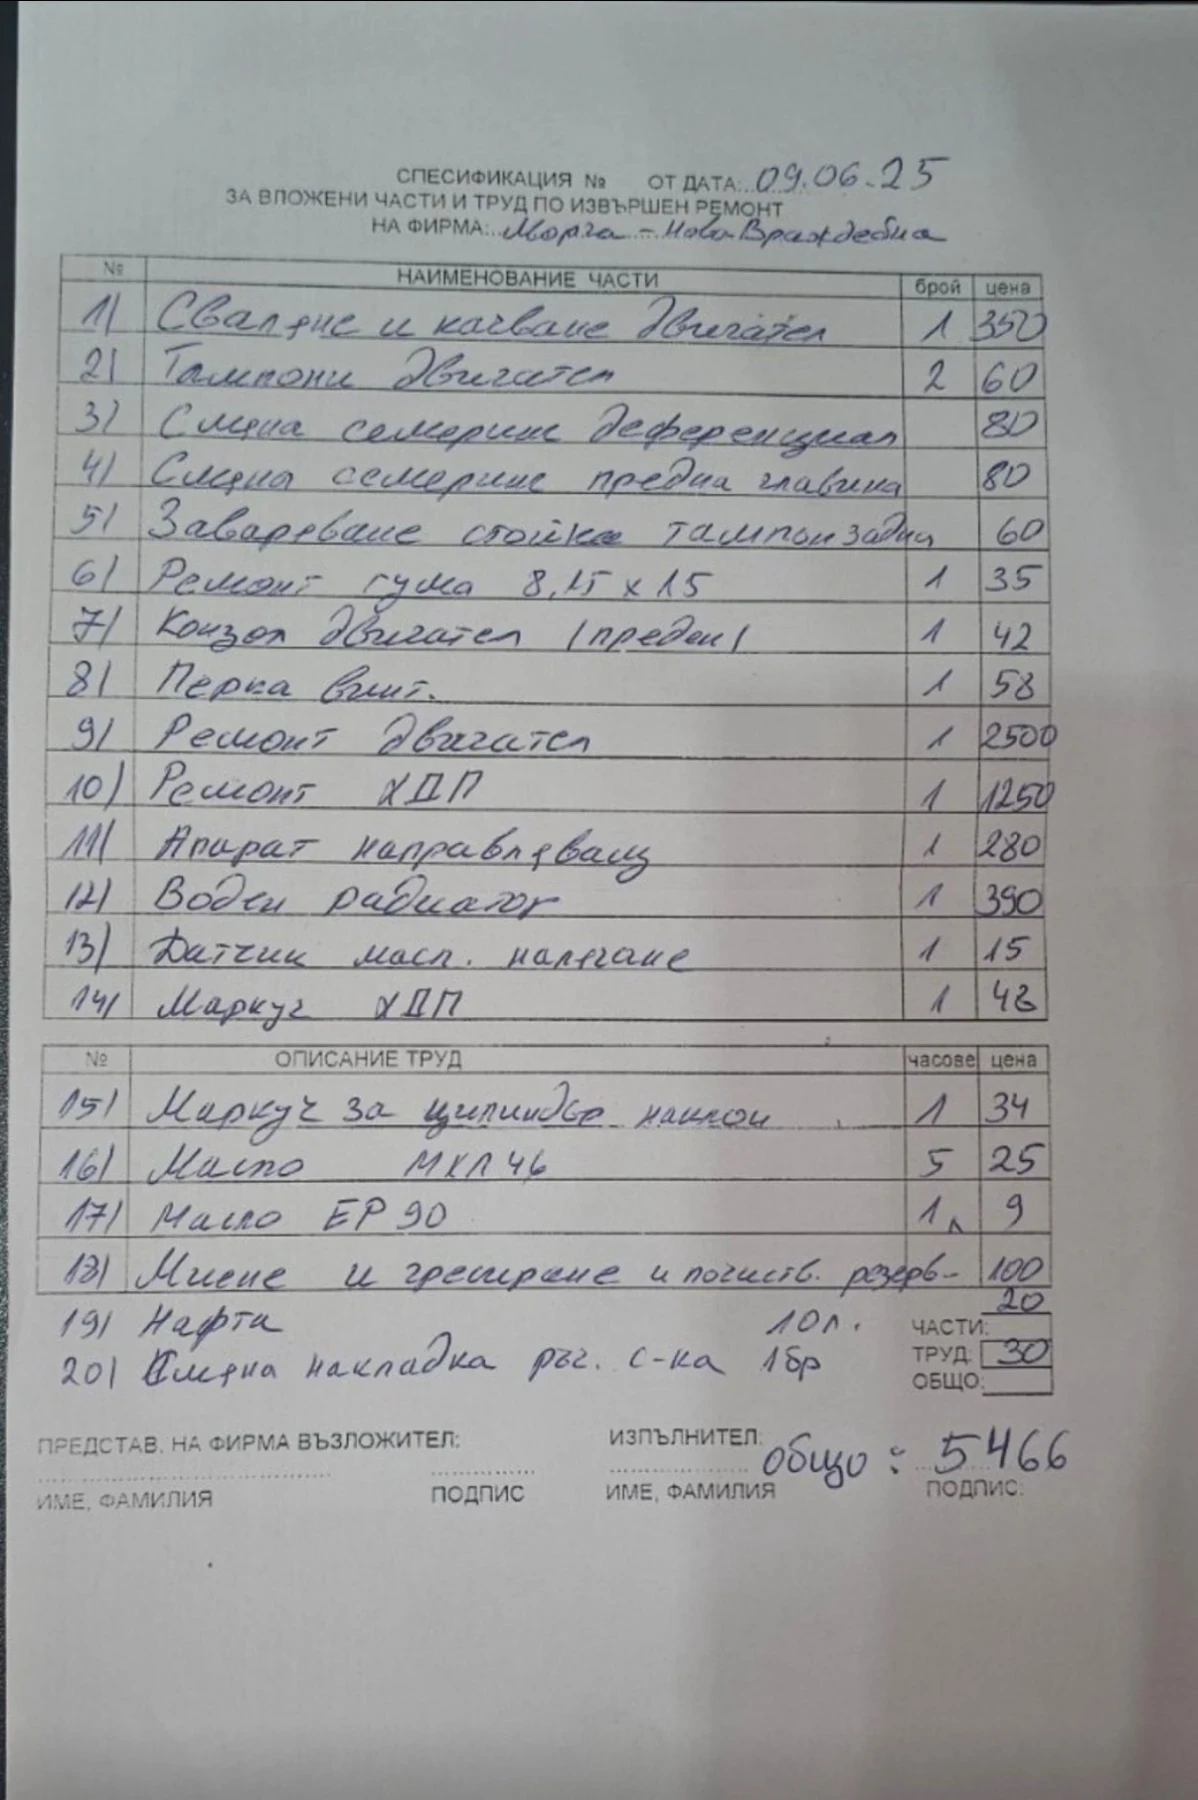 СПЕСИФИКАЦИЯ № ОТ ДАТА: 09.06.25
ЗА ВЛОЖЕНИ ЧАСТИ И ТРУД ПО ИЗВЪРШЕН РЕМОНТ
НА ФИРМА: - Нова Враждебна
№ НАИМЕНОВАНИЕ ЧАСТИ брой цена
1) Сваляне и качване двигател 1 350
2) Тампони двигател 2 60
3) Смяна семеринг деференциал 80
4) Смяна семеринг предна главина 80
5) Заваряване стойка тампон задна 60
6) Ремонт гума 8,15 x 15 1 35
7) Конзол двигател (преден) 1 42
8) Перка вент. 1 58
9) Ремонт двигател 1 2500
10) Ремонт ХДП 1 1250
11) Апарат направляващ 1 280
12) Воден радиатор 1 390
13) Датчик масл. налягане 1 15
14) Маркуч ХДП 1 48
№ ОПИСАНИЕ ТРУД часове цена
15) Маркуч за цилиндър наклон 1 34
16) Масло МХЛ 46 5 25
17) Масло EP 90 1л 9
18) Миене и гресиране и почиств. резерв- 100
19) Нафта 10л. 20
ЧАСТИ:
20) Смяна накладка ръч. с-ка 1бр ТРУД: 30
ОБЩО:
ПРЕДСТАВ. НА ФИРМА ВЪЗЛОЖИТЕЛ: ИЗПЪЛНИТЕЛ:
общо: 5466
ИМЕ, ФАМИЛИЯ ПОДПИС ИМЕ, ФАМИЛИЯ ПОДПИС: